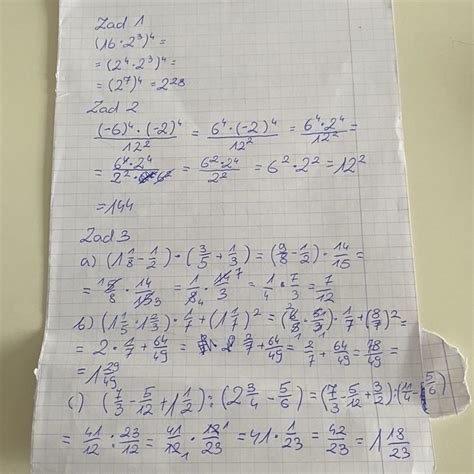 Zad 1
(16·2³)⁴ =
= (2⁴·2³)⁴ =
= (2⁷)⁴ = 2²⁸
Zad 2
(-6)⁴·(-2)⁴/12² = 6⁴·(-2)⁴/12² = 6⁴·2⁴/12² =
= 6⁴·2⁴/2²·6² = 6²·2⁴/2² = 6²·2² = 12²
= 144
Zad 3
a) (1 1/8 - 1/2)·(3/5 + 1/3) = (9/8 - 1/2)·14/15 =
= 5/8·14/15 = 1/8·14/3 = 1/4·7/3 = 7/12
b) (1 1/5·1 2/3)·1/7 + (1 1/7)² = (6/5·5/3)·1/7 + (8/7)² =
= 2·1/7 + 64/49 = 2/7 + 64/49 = 2/7 + 64/49 = 78/49 =
= 1 29/49
c) (7/3 - 5/12 + 1 1/2):(2 3/4 - 5/6) = (7/3 - 5/12 + 3/2):(11/4 - 5/6)
= 41/12 : 23/12 = 41/12·12/23 = 41·1/23 = 42/23 = 1 18/23